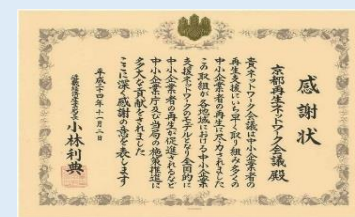 感謝状
京都再生ネットワーク会議 殿
貴ネットワーク会議は中小企業者の
再生支援にいち早く取り組み多くの
中小企業者の再生に尽力されました
この取組が各地域における中小企業
支援ネットワークのモデルとなり全国的に
中小企業者の再生が促進されるなど
中小企業庁及び当局の施策推進に
多大な貢献をされました
ここに深く感謝の意を表します
平成二十四年十一月二日
近畿経済産業局長 小林利典